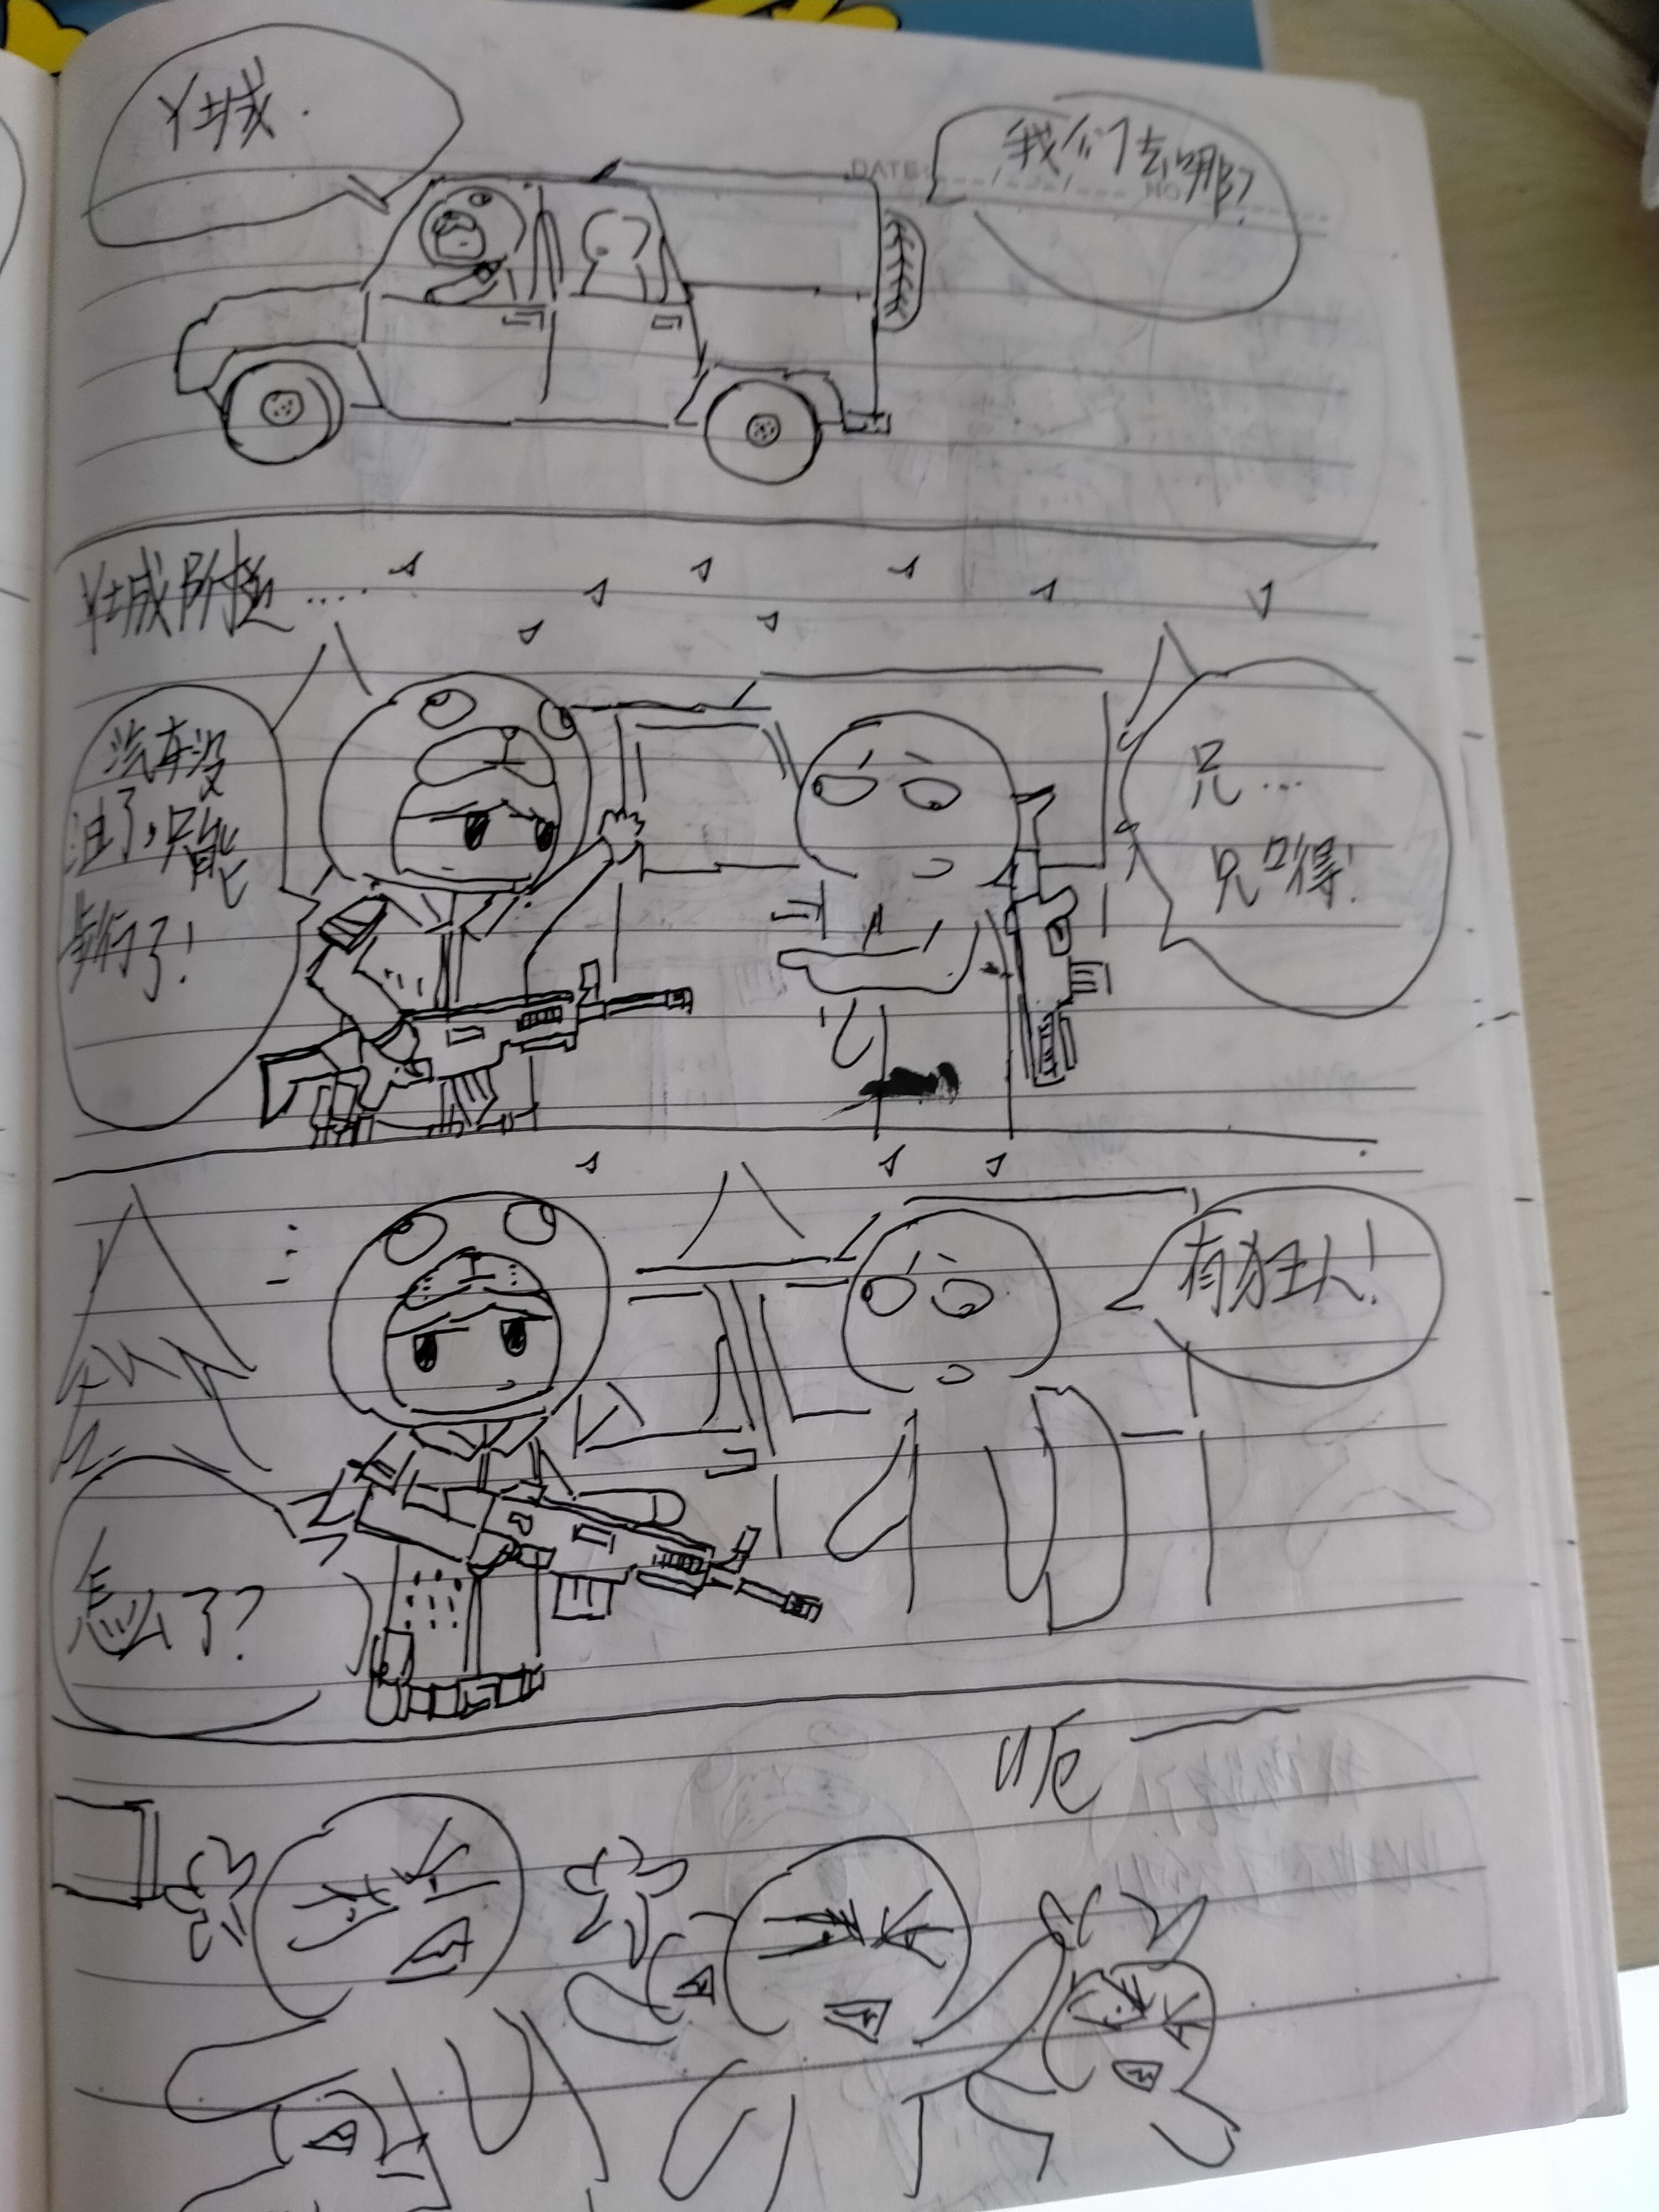 Y城.
我们去哪?
DATE
NO
Y城附近....
汽车没
油了,只能
步行了!
兄...
兄口得!
有狂人!
怎么了?
呃——